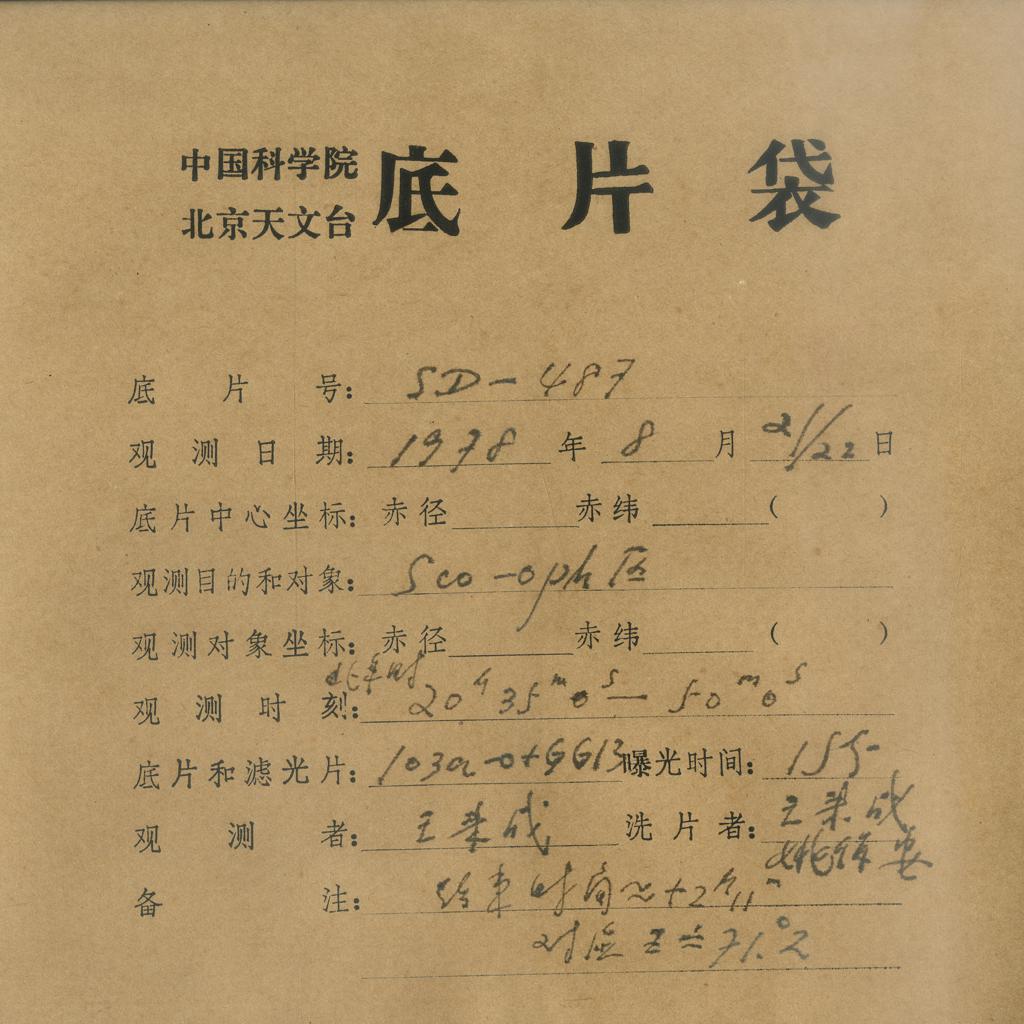 中国科学院
北京天文台 底片袋
底片号: SD-487
观测日期: 1978 年 8 月 21/22 日
底片中心坐标: 赤径 赤纬 ( )
观测目的和对象: Sco-oph 区
观测对象坐标: 赤径 赤纬 ( )
北京时
观测时刻: 20h35m0s—50m0s
底片和滤光片: 103a-0+GG13 曝光时间: 15分
观测者: 王来成 洗片者: 王来成
备注: 结束时角≈+2h11m
对应 Z≐71.°2